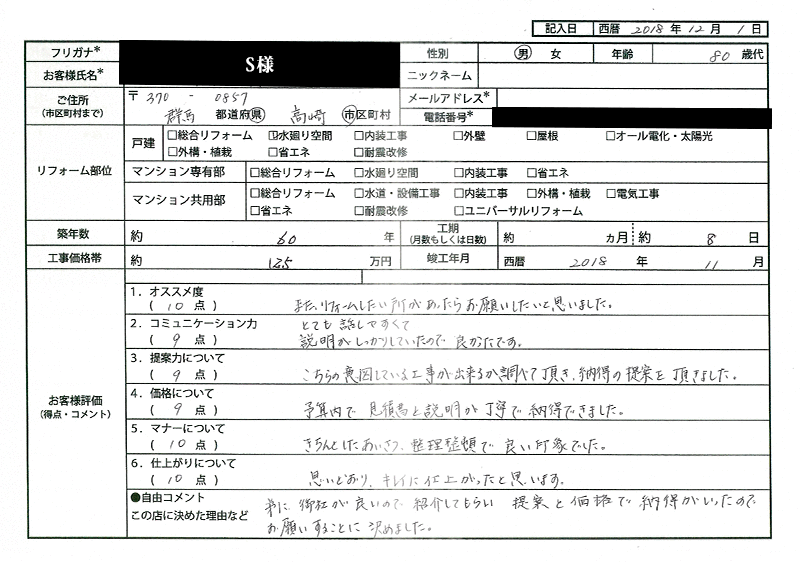 記入日 西暦 2018 年 12 月 1 日
フリガナ* S様 性別 男 女 年齢 80 歳代
お客様氏名* ニックネーム
ご住所 (市区町村まで) 〒 370 - 0857 メールアドレス*
群馬 都道府県 高崎 市区町村 電話番号*
リフォーム部位 戸建 □総合リフォーム ☑水廻り空間 □内装工事 □外壁 □屋根 □オール電化・太陽光
□外構・植栽 □省エネ □耐震改修
マンション専有部 □総合リフォーム □水廻り空間 □内装工事 □省エネ
マンション共用部 □総合リフォーム □水道・設備工事 □内装工事 □外構・植栽 □電気工事
□省エネ □耐震改修 □ユニバーサルリフォーム
築年数 約 60 年 工期 (月数もしくは日数) 約 カ月 約 8 日
工事価格帯 約 125 万円 竣工年月 西暦 2018 年 11 月
お客様評価 (得点・コメント)
1．オススメ度
( 10 点 ) また、リフォームしたい所があったらお願いしたいと思いました。
2．コミュニケーション力 とても話しやすくて
( 9 点 ) 説明がしっかりしていたので良かったです。
3．提案力について
( 9 点 ) こちらの意図している工事が出来るか調べて頂き、納得の提案を頂きました。
4．価格について
( 9 点 ) 予算内で見積書と説明が丁寧で納得できました。
5．マナーについて
( 10 点 ) きちんとしたあいさつ、整理整頓で良い印象でした。
6．仕上がりについて
( 10 点 ) 思いどおり、キレイに仕上がったと思います。
●自由コメント
この店に決めた理由など
御社が良いので紹介してもらい 提案と価格で納得がいったので
お願いすることに決めました。